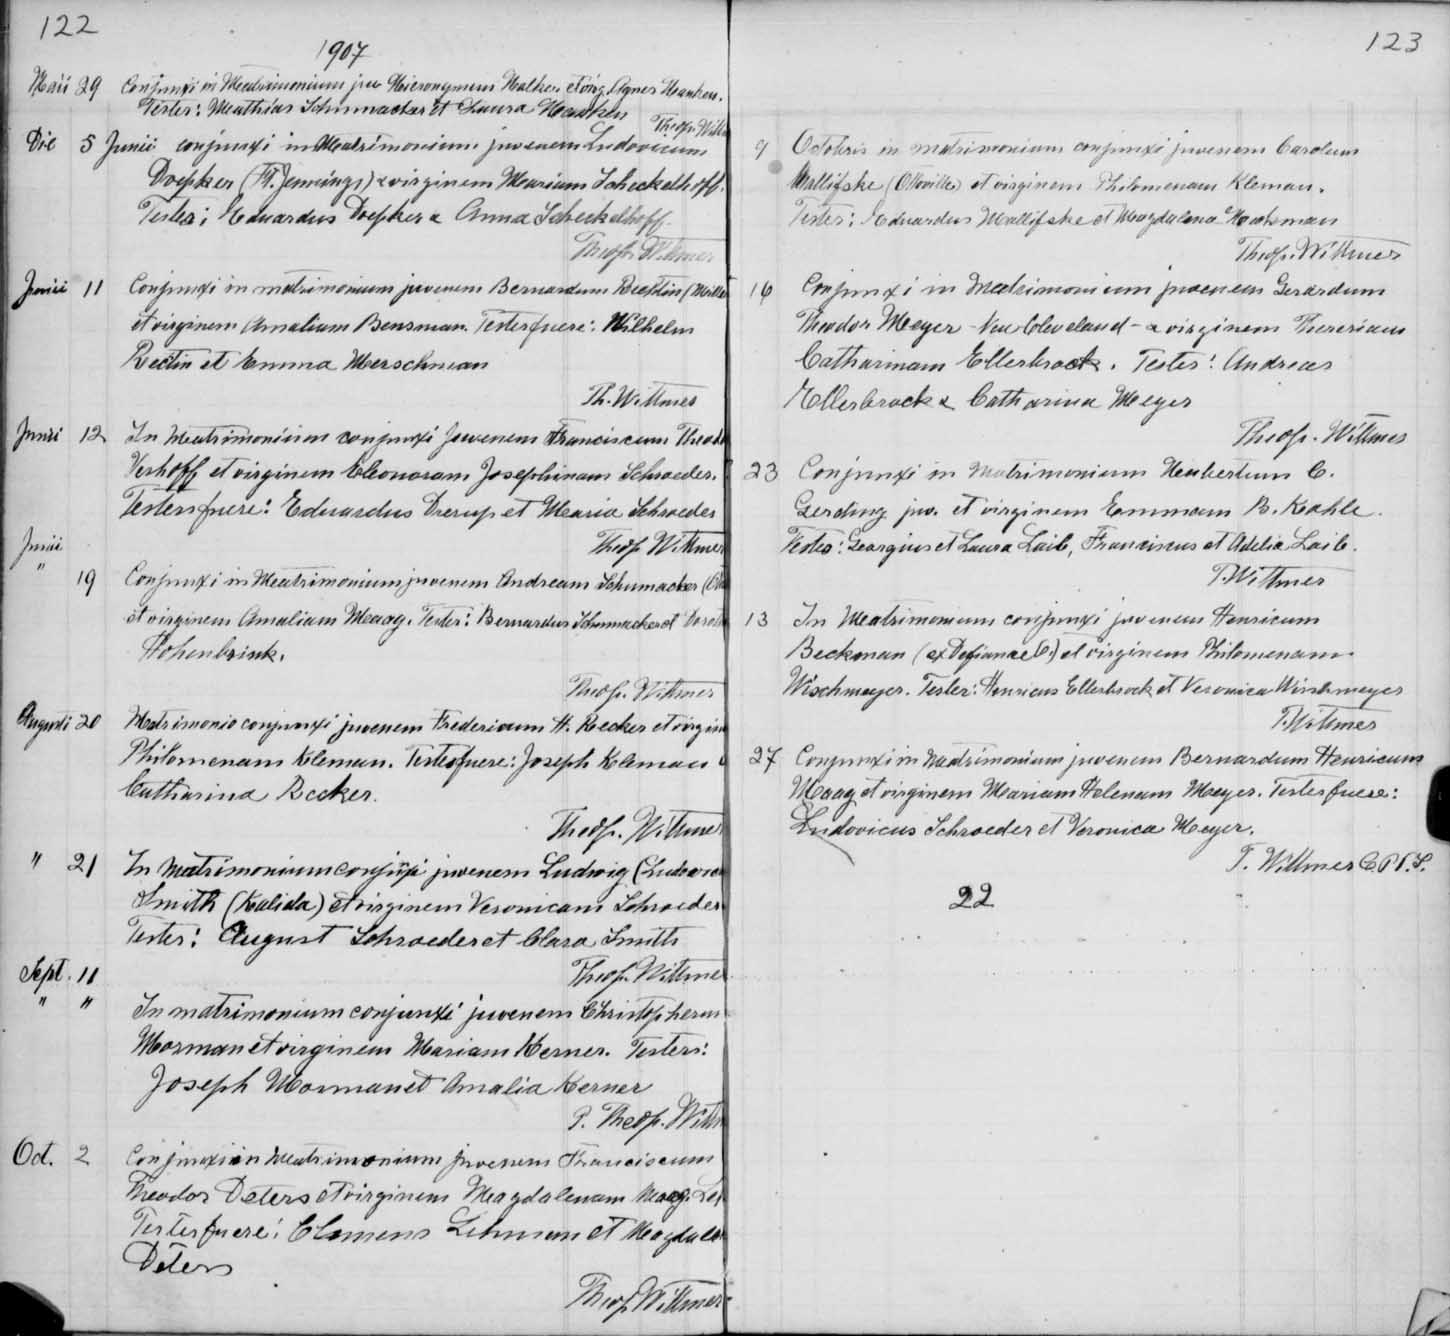 122
1907
Maii 29 Conjunxi in Matrimonium juv Hieronymum et virg. Agnes
Testes: Matthias Schumacher et Laura
Theop. Witt
Die 5 Junii conjunxi in Matrimonium juvenem Ludovicum
Doepker (Ft. Jennings) & virginem Mariam Scheckelhoff.
Testes: Eduardus Doepker & Anna Scheckelhoff.
Theop. Wittmer
Junii 11 Conjunxi in matrimonium juvenem Bernardum Rechtin (Miller
et virginem Amaliam Bensman. Testes fuere: Wilhelm
Rectin et Emma Merschman
Th. Wittmer
Junii 12 In Matrimonium conjunxi Juvenem Franciscum Theod
Verhoff et virginem Eleonoram Josephinam Schroeder.
Testes fuere: Eduardus Drerup et Maria Schroeder
Theop Wittmer
Junii
" 19 Conjunxi in Matrimonium juvenem Andream Schumacher
et virginem Amaliam Maag. Testes: Bernardus Schumacher et Dorot
Hohenbrink.
Theop. Wittmer
Augusti 20 Matrimonio conjunxi juvenem Fredericum H. Recker et virgin
Philomenam Kleman. Testes fuere: Joseph Kleman &
Catharina Recker.
Theop. Wittmer
" 21 In Matrimonium conjuxi juvenem Ludwig (Ludovic
Smith (Kalida) et virginem Veronicam Schroeder
Testes: August Schroeder et Clara Smith
Theop. Wittmer
Sept. 11
" " In matrimonium conjunxi juvenem Christopherum
Morman et virginem Mariam Kerner. Testes:
Joseph Morman et Amalia Kerner
P. Theop. Wittm
Oct. 2 Conjunxi in Matrimonium juvenem Franciscum
Theodor Deters et virginem Magdalenam Maag.
Testes fuere: Clemens Lehman et Magdale
Deters
Theop Wittmer
123
9 Octobris in matrimonium conjunxi juvenem Carolum
Wallifske (Ottoville) et virginem Philomenam Kleman.
Testes: Eduardus Wallifske et Magdalena
Theop. Wittmer
16 Conjunxi in Matrimonium juvenem Gerardum
Theodor Meyer - New Cleveland - & virginem Theresiam
Catharinam Ellerbrock. Testes: Andreas
Ellerbrock & Catharina Meyer
Theop. Wittmer
23 Conjunxi in Matrimonium Heubertum C.
Gerding juv. et virginem Emmam B. Kahle.
Testes: Georgius et Laura Laib, Franciscus et Adelia Laib.
T. Wittmer
13 In Matrimonium conjunxi juvenem Henricum
Beckman (ex Defiance C.) et virginem Philomenam
Wischmeyer. Testes: Henricus Ellerbrock et Veronica Wischmeyer
T. Wittmer
27 Conjunxi in Matrimonium juvenem Bernardum Henricum
Maag et virginem Mariam Helenam Meyer. Testes fuere:
Ludovicus Schroeder et Veronica Meyer.
T. Wittmer C.PP.S.
22